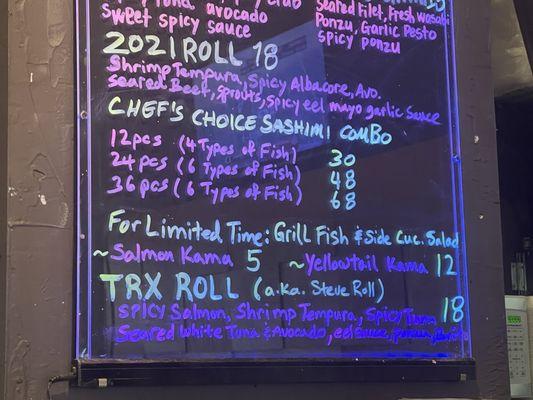 spicy tuna avocado spicy crab
sweet spicy sauce
seared Filet, Fresh wasabi
Ponzu, Garlic Pesto
spicy ponzu
2021 ROLL 18
Shrimp Tempura, Spicy Albacore, Avo.
Seared Beef, Sprouts, Spicy eel mayo garlic Sauce
CHEF'S CHOICE SASHIMI COMBO
12pcs (4 Types of Fish) 30
24pcs (6 Types of Fish) 48
36pcs (6 Types of Fish) 68
For Limited Time: Grill Fish & Side Cuc. Salad
~Salmon Kama 5 ~Yellowtail Kama 12
TRX ROLL (a.ka. Steve Roll)
Spicy Salmon, Shrimp Tempura, Spicy Tuna 18
Seared White Tuna & Avocado, eel sauce, ponzu,